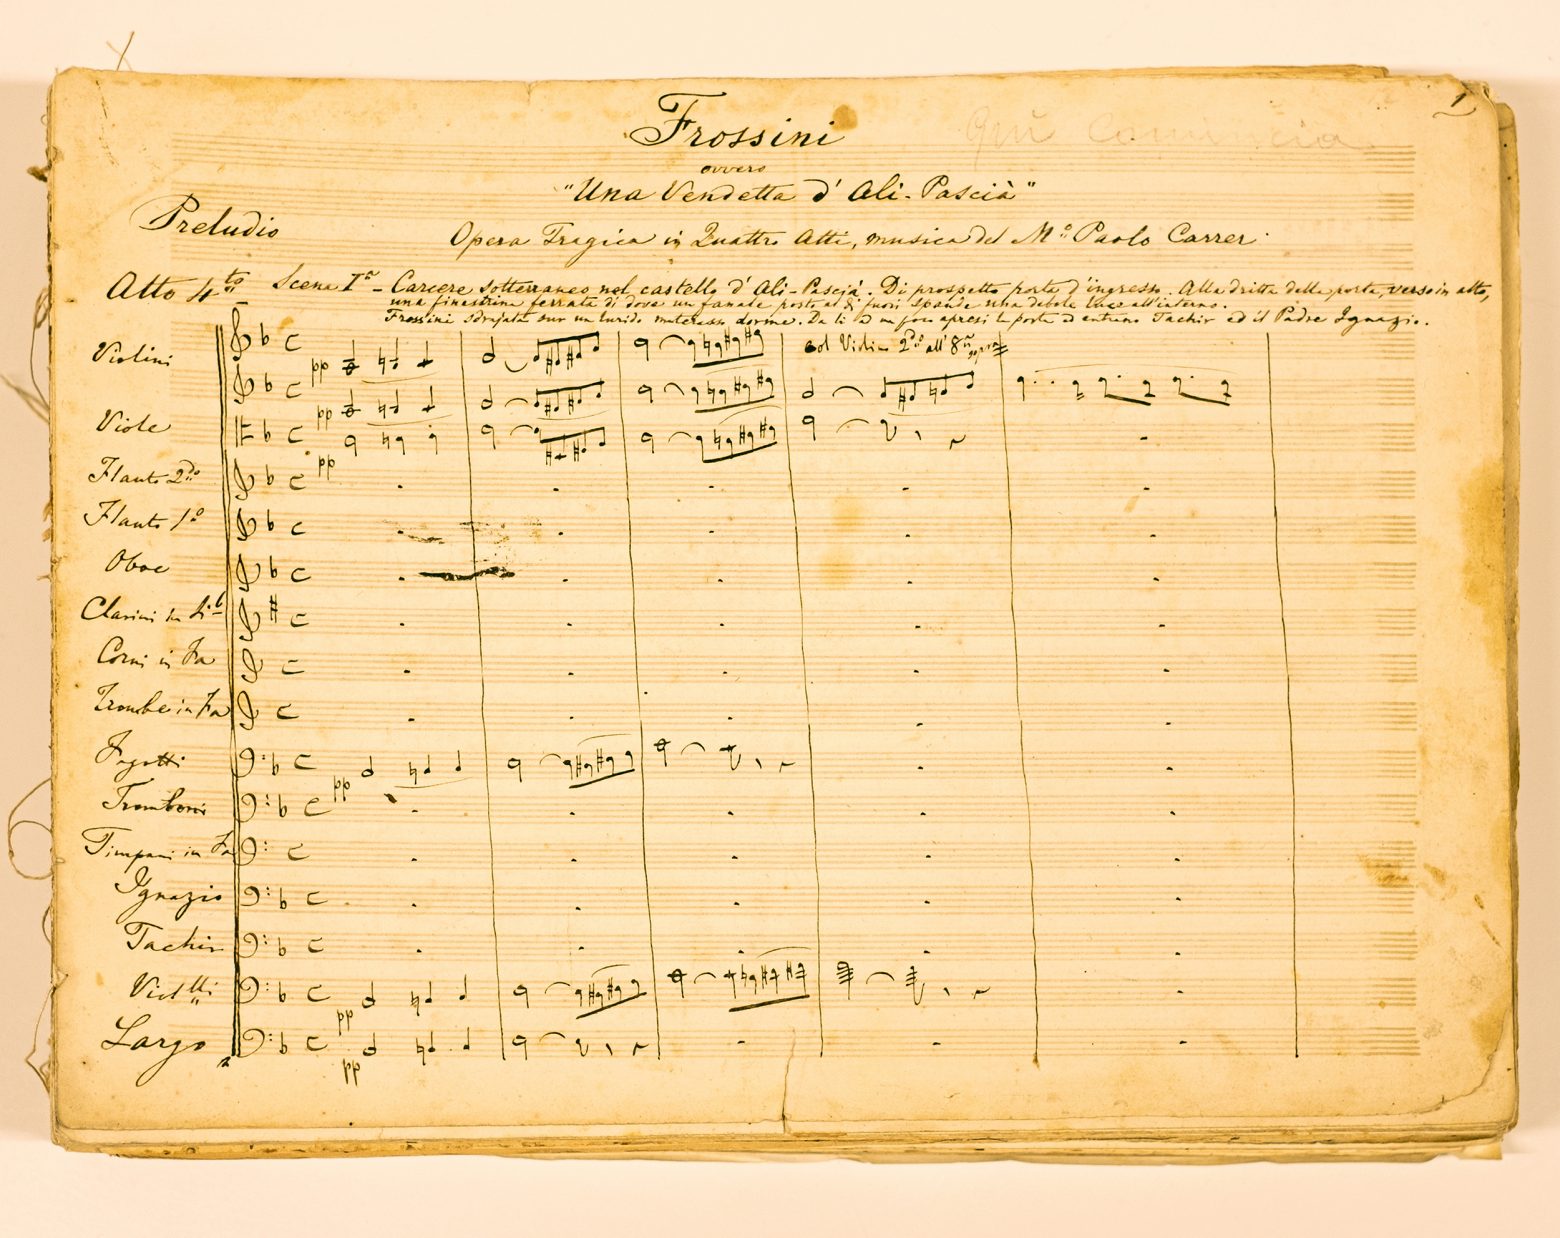 1
Frossini
ovvero
"Una Vendetta d' Ali-Pascià"
Preludio
Opera Tragica in Quattro Atti, musica del Mº Paolo Carrer
Atto 4to Scena Iª - Carcere sotterraneo nel castello d' Ali-Pascià. Di prospetto porta d'ingresso. Alla dritta della porta, verso in alto,
una finestrina ferrata di dove un fanale posto al di fuori spande una debole luce all'interno.
Frossini sdrajata sur un lurido materasso dorme. Da lì a un poco apresi la porta ed entrano Tachir ed il Padre Ignazio.
Violini
pp
col Violino 2do all' 8va sopra
pp
Viole
pp
Flauto 2do
Flauto 1º
Oboe
Clarini in Sib
Corni in Fa
Trombe in Fa
Fagotti
pp
Tromboni
Timpani in Fa
Ignazio
Tachir
Viollli
pp
Largo
pp